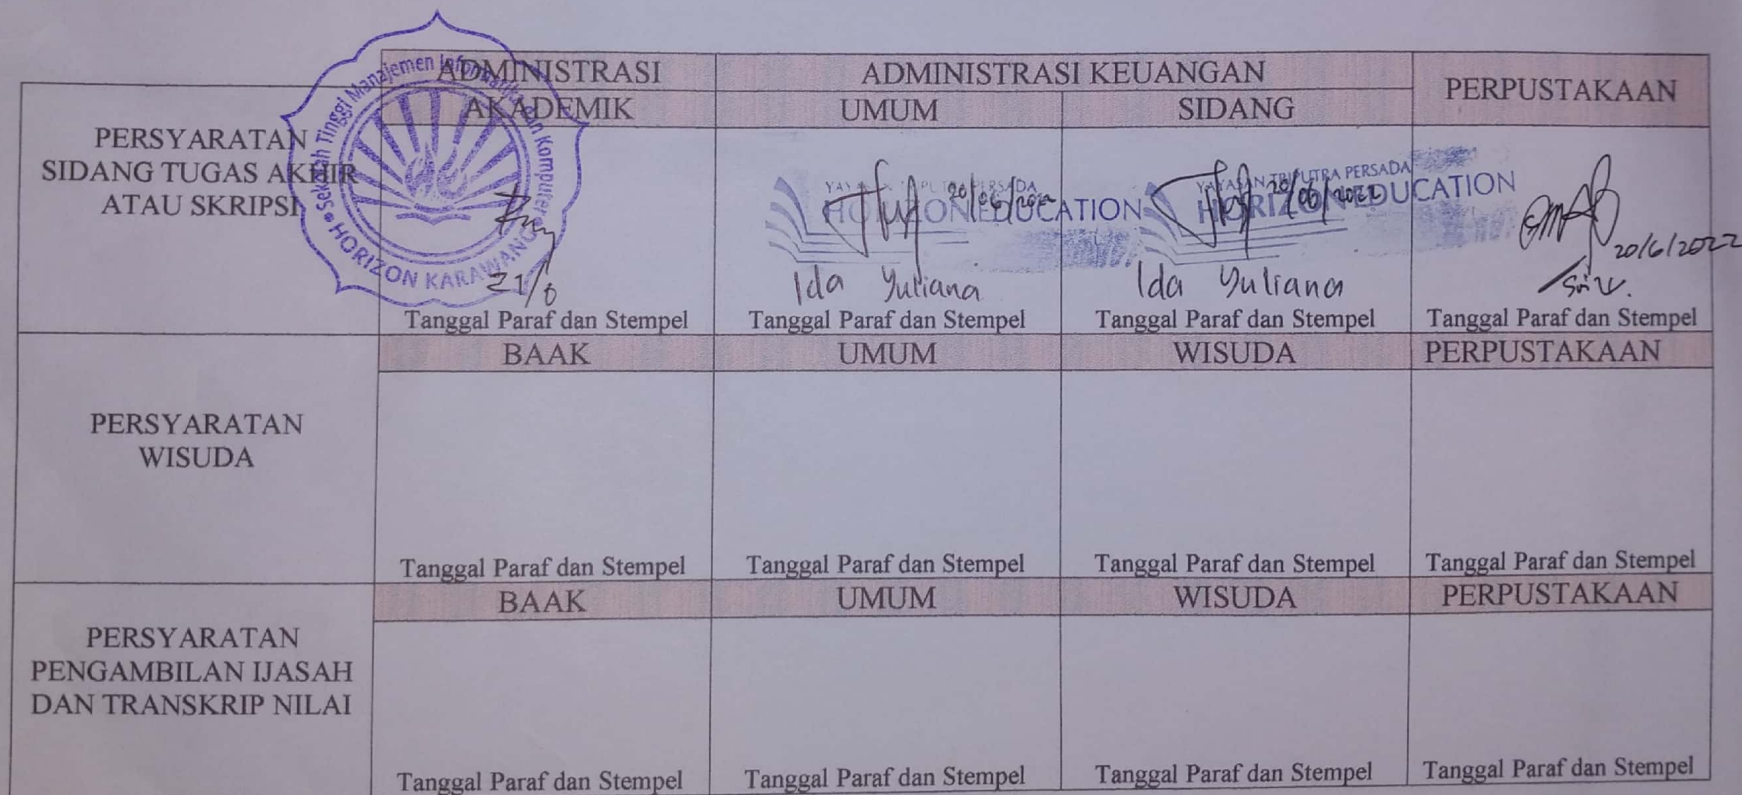 ADMINISTRASI AKADEMIK
ADMINISTRASI KEUANGAN
PERPUSTAKAAN
UMUM
SIDANG
PERSYARATAN
SIDANG TUGAS AKHIR
ATAU SKRIPSI
Sekolah Tinggi Manajemen Informatika dan Komputer
HORIZON KARAWANG
21/6
Tanggal Paraf dan Stempel
YAYASAN TRIPUTRA PERSADA
HORIZON EDUCATION
20/06/2022
Ida Yuliana
Tanggal Paraf dan Stempel
YAYASAN TRIPUTRA PERSADA
HORIZON EDUCATION
20/06/2022
Ida Yuliana
Tanggal Paraf dan Stempel
20/6/2022
Tanggal Paraf dan Stempel
BAAK
UMUM
WISUDA
PERPUSTAKAAN
PERSYARATAN
WISUDA
Tanggal Paraf dan Stempel
Tanggal Paraf dan Stempel
Tanggal Paraf dan Stempel
Tanggal Paraf dan Stempel
BAAK
UMUM
WISUDA
PERPUSTAKAAN
PERSYARATAN
PENGAMBILAN IJASAH
DAN TRANSKRIP NILAI
Tanggal Paraf dan Stempel
Tanggal Paraf dan Stempel
Tanggal Paraf dan Stempel
Tanggal Paraf dan Stempel